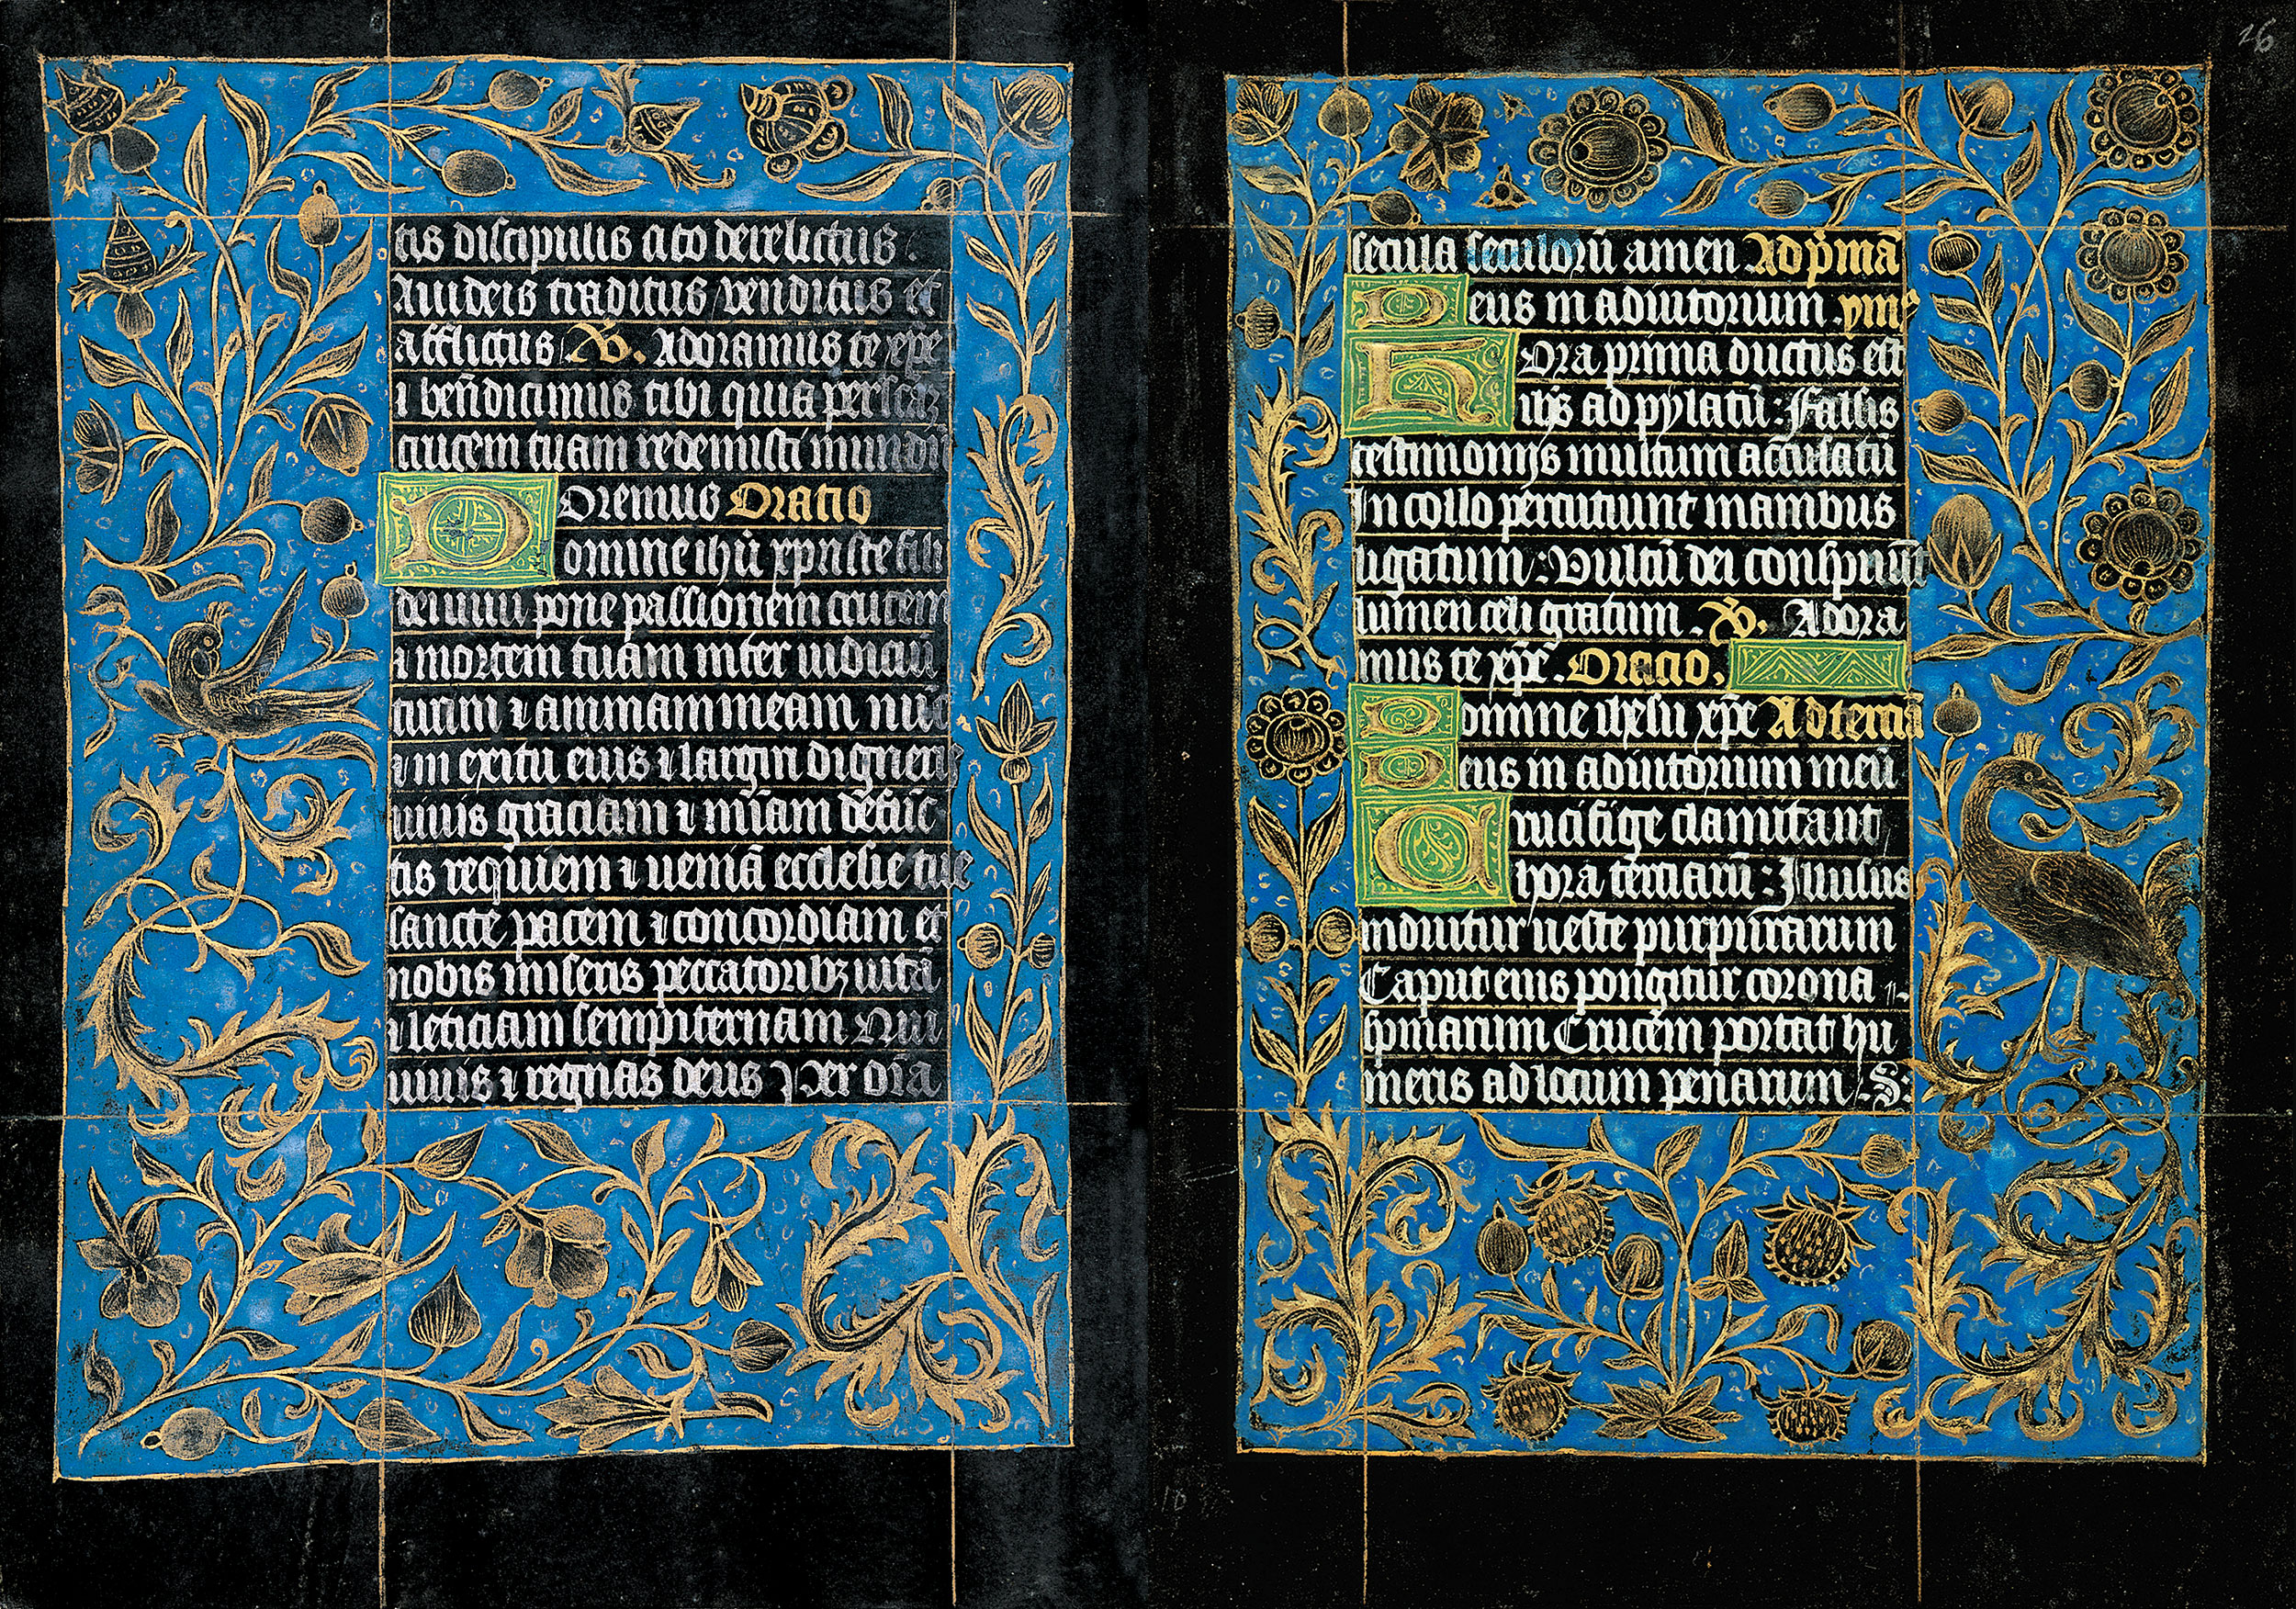 tis discipulis cito derelictus .
A iudeis traditus venditus et
afflictus . V̄. Adoramus te xp̄e
⁊ ben̄dicimus tibi quia per scāꝫ
crucem tuam redemisti mundū
Oremus Oratio
Domine ihū xp̄riste fili
dei viui pone passionem crucem
⁊ mortem tuam inter iudiciū
tuum ⁊ animam meam nūc
⁊ in exitu eius ⁊ largiri digneris
viuis graciam ⁊ m̄iam defūc
tis requiem ⁊ ueniā ecclesie tue
sancte pacem ⁊ concordiam et
nobis miseris peccatoribꝫ uitā
⁊ leticiam sempiternam Qui
viuis ⁊ regnas deus Per oīa
16
secula seculorū amen Ad p̄mā
Deus in adiutorium ym̄
Hora prima ductus est
ihs̄ ad pylatū : Falsis
testimonijs multum accusatū
In collo percutiunt manibus
ligatum : Vultū dei conspuūt
lumen celi gratum . V̄. Adora
mus te xp̄e . Oracio.
Domine ihesu xp̄e Ad terciā
Deus in adiutorium meū
Crucifige clamitant
hora terciarū : Illusus
induitur ueste purpurarum
Caput eius pongitur corona
spinarum Crucem portat hu
meris ad locum penarum . S: